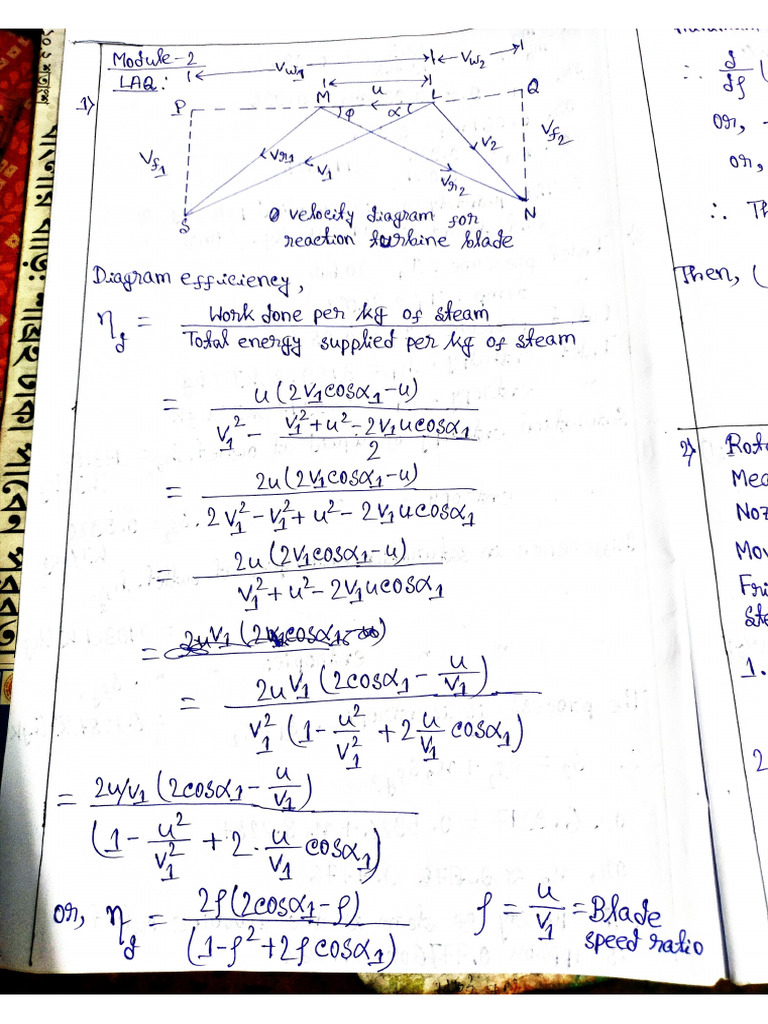 Module-2
LAQ:
1)
Vw1
Vw2
u
P
M
L
Q
φ
α
Vf1
Vr1
V1
Vr2
V2
Vf2
S
N
velocity diagram for
reaction turbine blade
Diagram efficiency,
η_d = Work done per kg of steam / Total energy supplied per kg of steam
= u(2V1cosα1-u) / V1² - (V1²+u²-2V1ucosα1)/2
= 2u(2V1cosα1-u) / 2V1²-V1²+u²-2V1ucosα1
= 2u(2V1cosα1-u) / V1²+u²-2V1ucosα1
= 2uV1(2cosα1 - u/V1) / V1²(1 - u²/V1² + 2 u/V1 cosα1)
= 2u/V1(2cosα1 - u/V1) / (1 - u²/V1² + 2. u/V1 cosα1)
or, η_d = 2ρ(2cosα1-ρ) / (1-ρ²+2ρcosα1)
ρ = u/V1 = Blade
speed ratio
∴ d/dρ (
or, -
or,
∴ Th
Then, (
2)
1.
2